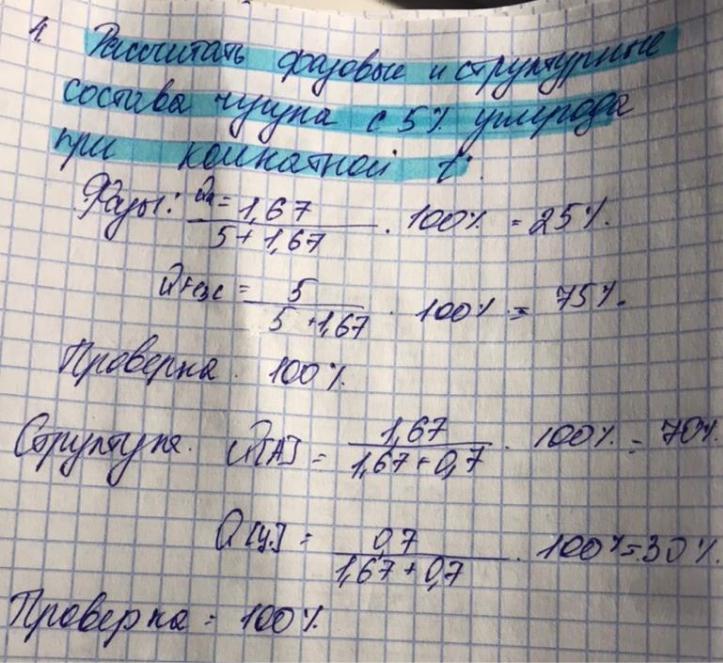 1. Рассчитать фазовые и структурные
состава чугуна с 5% углерода
при комнатной t°.
Фазы: Qα = 1,67 / 5 + 1,67 · 100% = 25%.
QFe3C = 5 / 5 + 1,67 · 100% = 75%.
Проверка. 100%.
Структура. Q[Л] = 1,67 / 1,67 + 0,7 · 100% = 70%
Q[Ц] = 0,7 / 1,67 + 0,7 · 100% = 30%.
Проверка = 100%